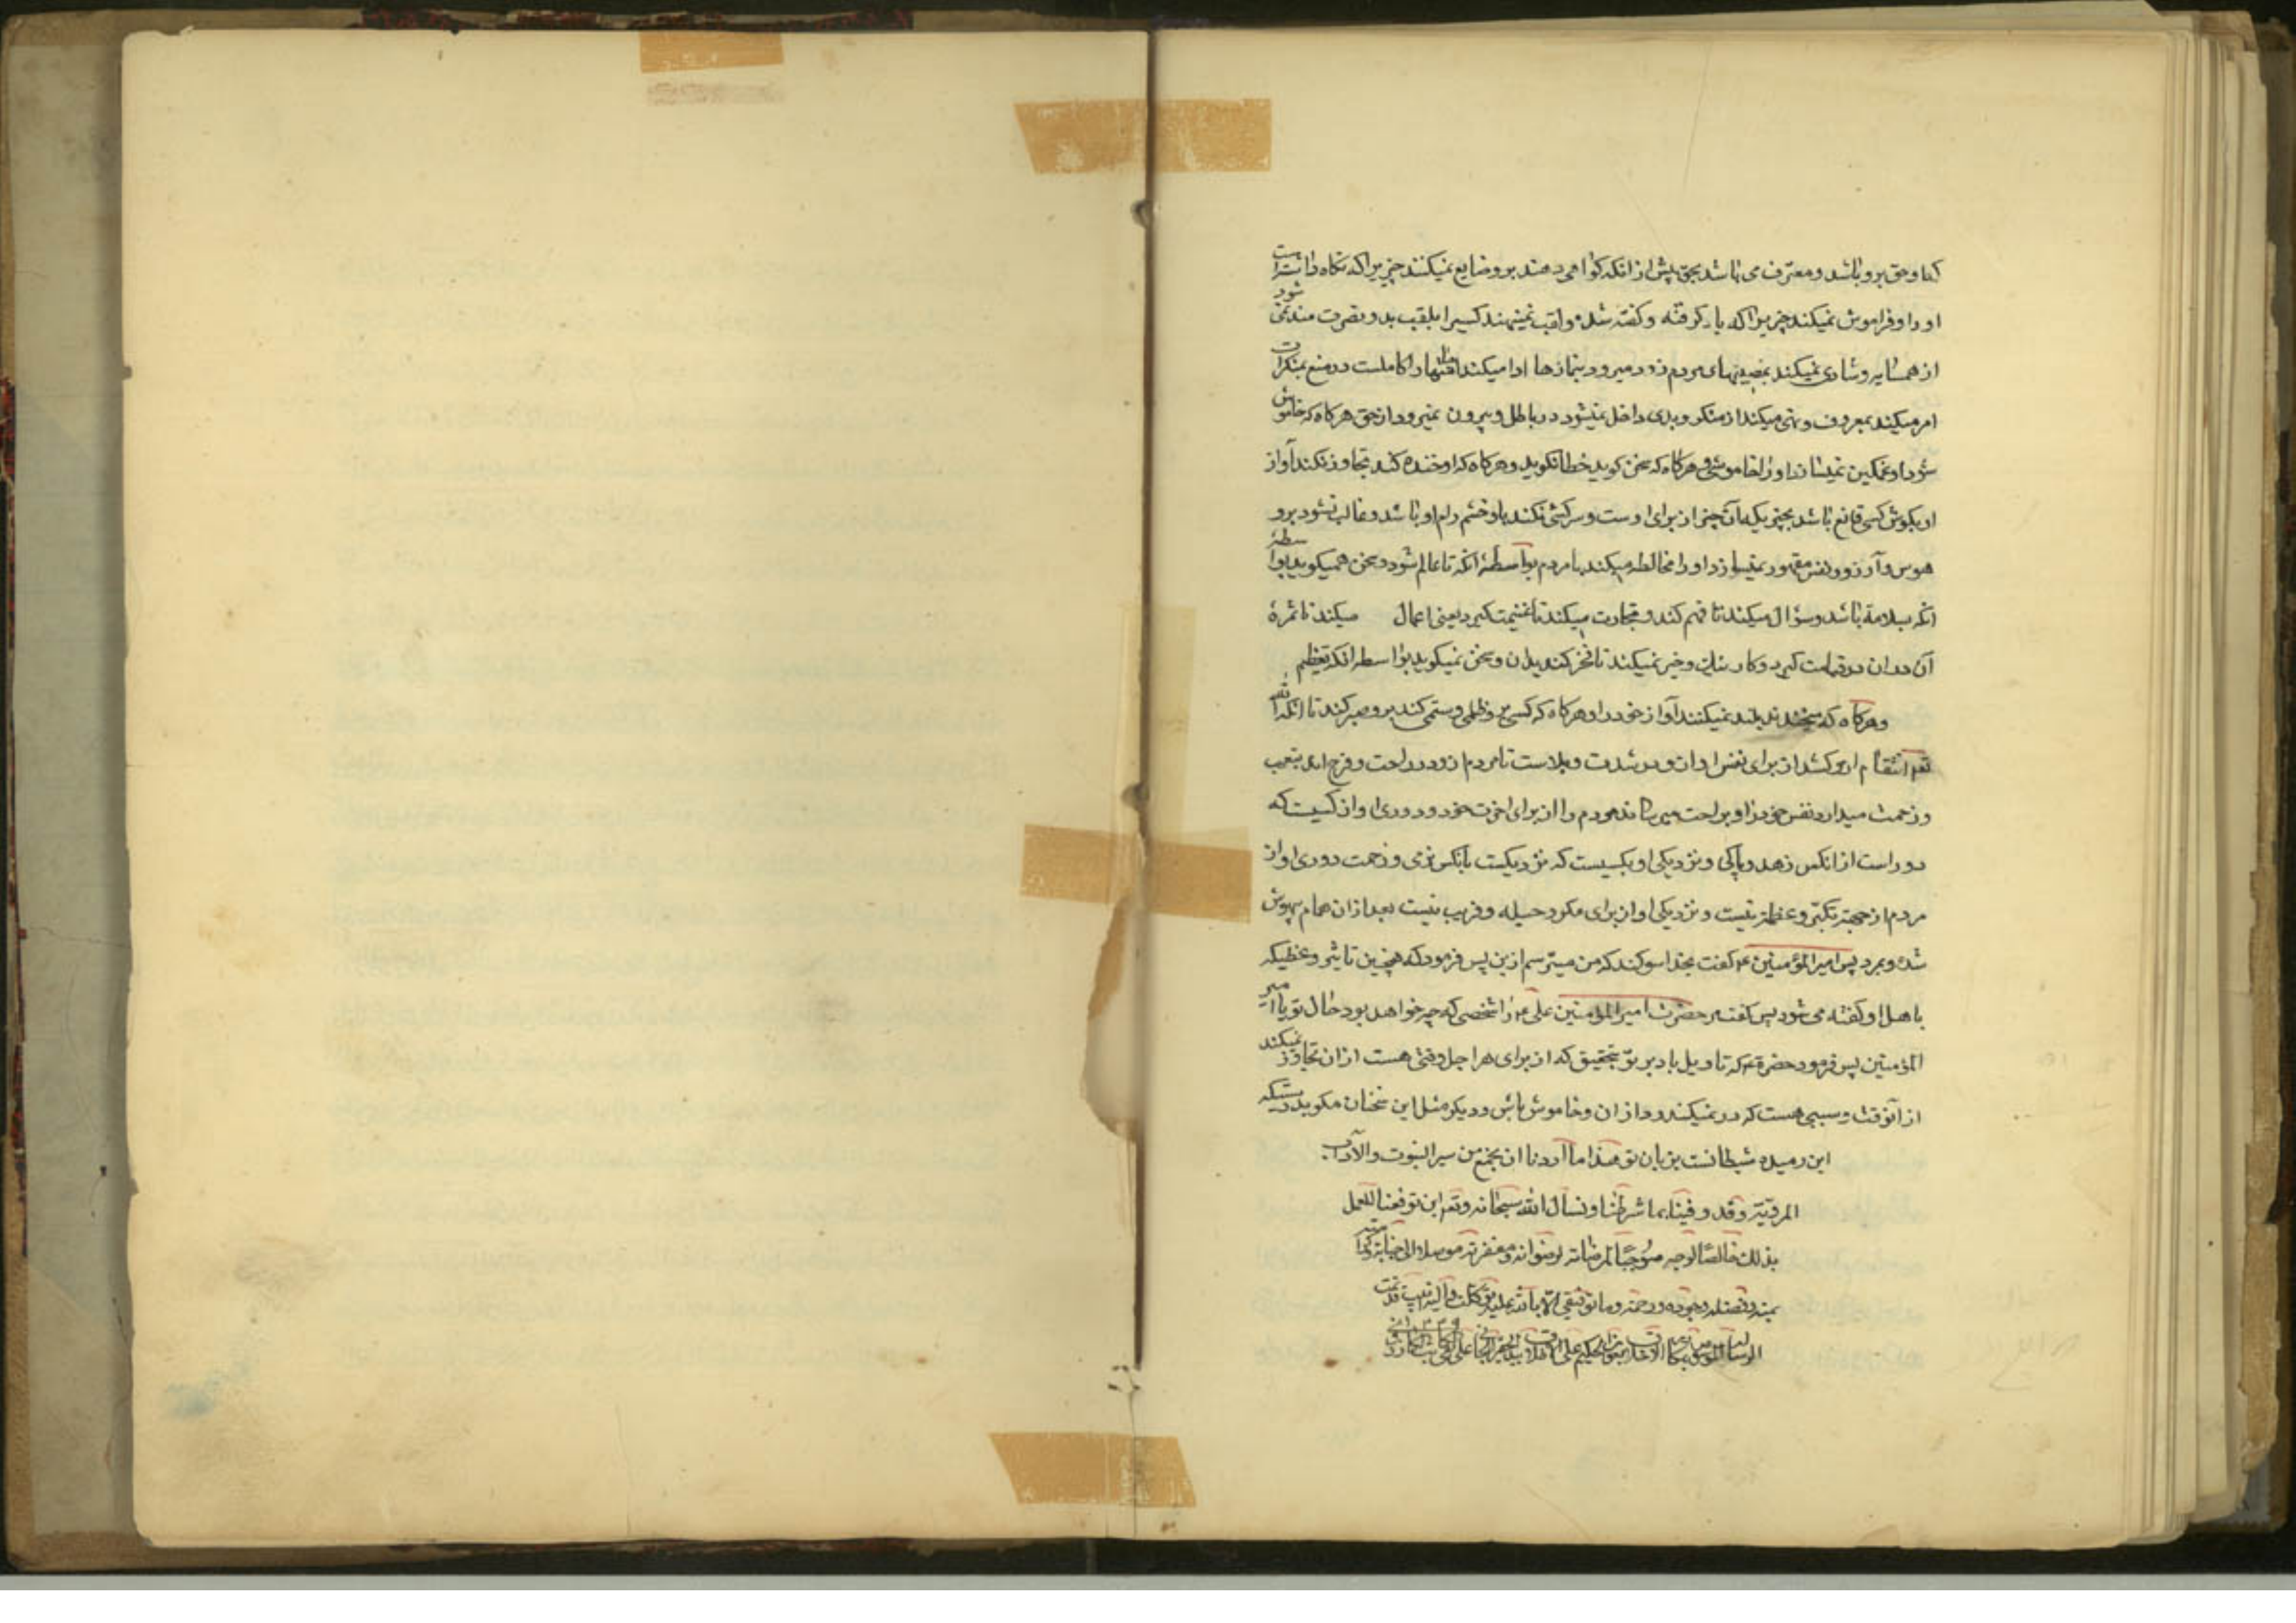 که او حق برو باشد و معترف می باشد بحق پیش از انکه کواهی دهند برو ضایع نمیکنند چیزیرا که نکاه داشته است
او را و فراموش نمیکند چیزیرا که یاد کرفته و کفته شده و لقب نمینهند کسیرا بلقب بد و بضرت مند نمی شود
از همسایه و شادی نمیکند بمصیبتهای مردم زود میرود بنمازها ادا میکند امانتها را کاملست در منع منکرات
امر میکند بمعروف و نهی میکند از منکر و بدی داخل نمیشود در باطل و بیرون نمیرود از حق هرکاه که خاموش
شود او غمکین نمیسازد او را خاموشی و هرکاه که سخن کوید خطا نکوید و هرکاه که او خنده کند تجاوز نکند آواز
او بکوش کسی قانع باشد بچیزیکه آن چیز از برای اوست و سرکشی نکند باو خشم رام او باشد و غالب نشود برو
هوس و آرزو و نفس مقهور نمیسازد او را مخالطه میکند با مردم بواسطهٔ انکه تا عالم شود و سخن همیکوید بواسطهٔ
انکه بسلامة باشد و سؤال میکند تا فهم کند و تجارت میکند تا غنیمت کیرد یعنی اعمال میکند تا ثمرهٔ
آن در ان در قیامت کیرد و کار نیک و خیر نمیکند تا فخر کند بدان و سخن نمیکوید بواسطه انکه تعظیم
و هرکاه که میخندند بلند نمیکنند آواز خود را و هرکاه که کسی برو ظلمی و ستمی کند برو صبر کند تا انکه الله
تعه انتقام ازو کشد از برای نفس او ازو در شدت و بلاست تا مردم ازو در راحت و فرح اند بتعب
و زحمت میدارد نفس خود را و براحت میرساند مردم را از برای اخرت خود و دوری او از کسیست که
دور است از انکس زهد و پاکی و نزدیکی او بکسیست که نزدیکست بآنکس نرمی و زحمت دوری او از
مردم از جهة تکبر و عظمة نیست و نزدیکی او از برای مکر و حیله و فریب نیست بعد از ان همام بیهوش
شد و بمرد پس امیر المؤمنین ع کفت بخدا سوکند که من میترسم ازین پس فرمود که همچنین تاثیر وعظیکه
باهل او کفته می شود پس کفت مر حضرت امیر المؤمنین علی ع را شخصی که چه خواهد بود حال تو یا امیر
المؤمنین پس فرمود حضرة ع که تا ویل باد بر تو بتحقیق که از برای هر اجل وقتی هست از ان تجاوز نمیکند
از آنوقت و سببی هست که در نمیکذرد از ان و خاموش باش و دیکر مثل این سخنان مکوید درستیکه
این دمیده شیطانست بزبان تو هذا ما اردنا ان نجمع من سیر النبوت و الآداب
المرویة و قد وفینا بما شرطنا و نسال الله سبحانه و تعه ان یوفقنا للعمل
بذلک خالصا لوجهه موجبا لمرضاته لرضوانه و مغفرته موصلا الی جنانه و کرامته
بمنه و فضله و جوده و رحمته و ما توفیقی الا بالله علیه توکلت و الیه انیب قد تمت